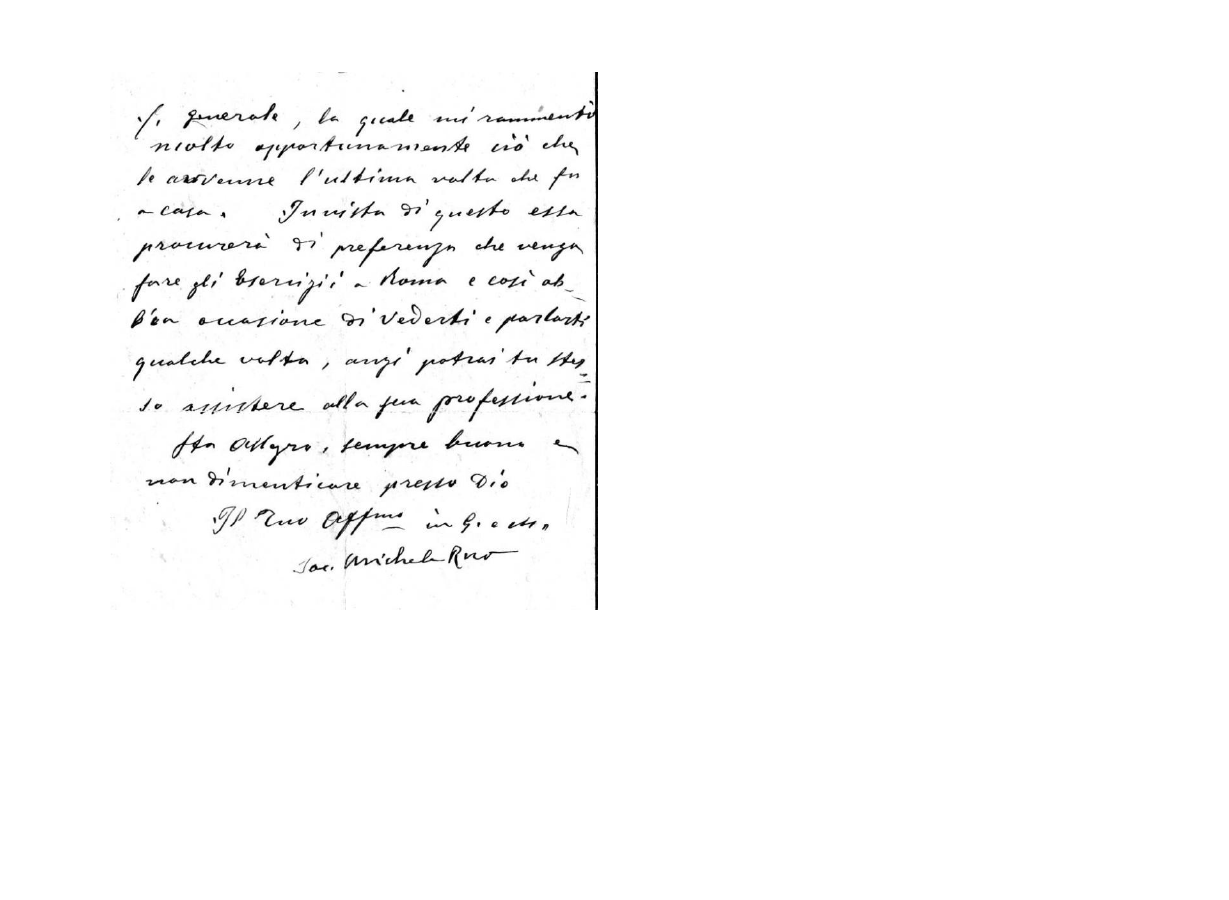 S. generale, la quale mi rammentò
molto opportunamente ciò che
le avvenne l'ultima volta che fu
a casa. In vista di questo essa
procurerà di preferenza che venga
fare gli Esercizii a Roma e così ab-
bia occasione di vederti e parlarti
qualche volta, anzi potrai tu stes=
so assistere alla sua professione.
Sta allegro, sempre buono e
non dimenticare presso Dio
Il Tuo Affmo in G. e M.
Sac. Michele Rua